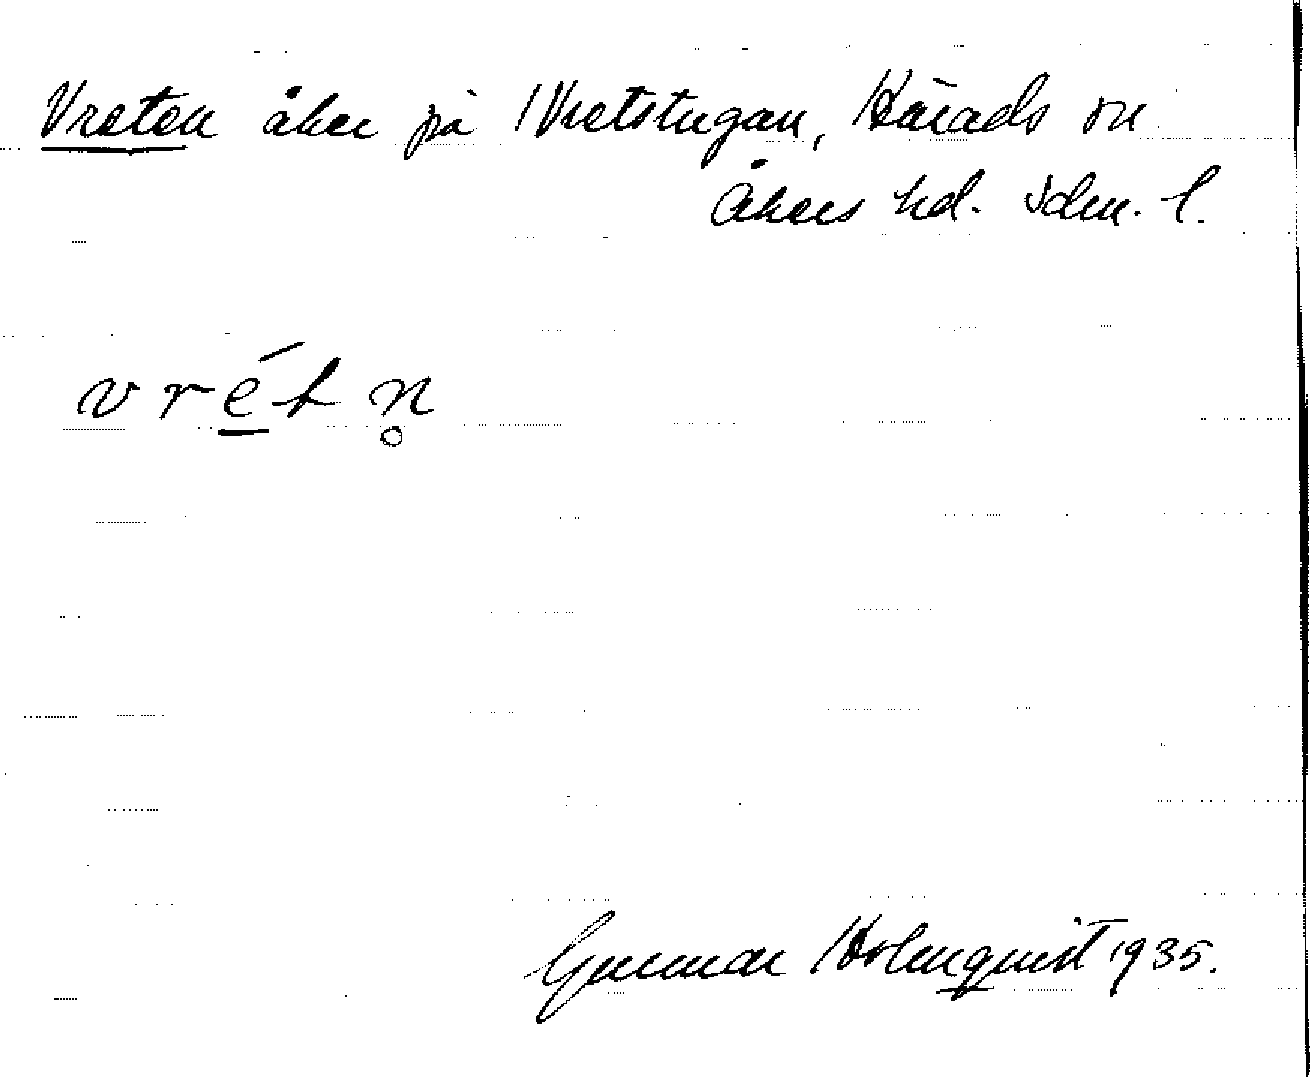 Vreten åker på Vretstugan, Härads sn
Åkers hd. Sdm. l.
vrét n̥
Gunnar Holmquist 1935.